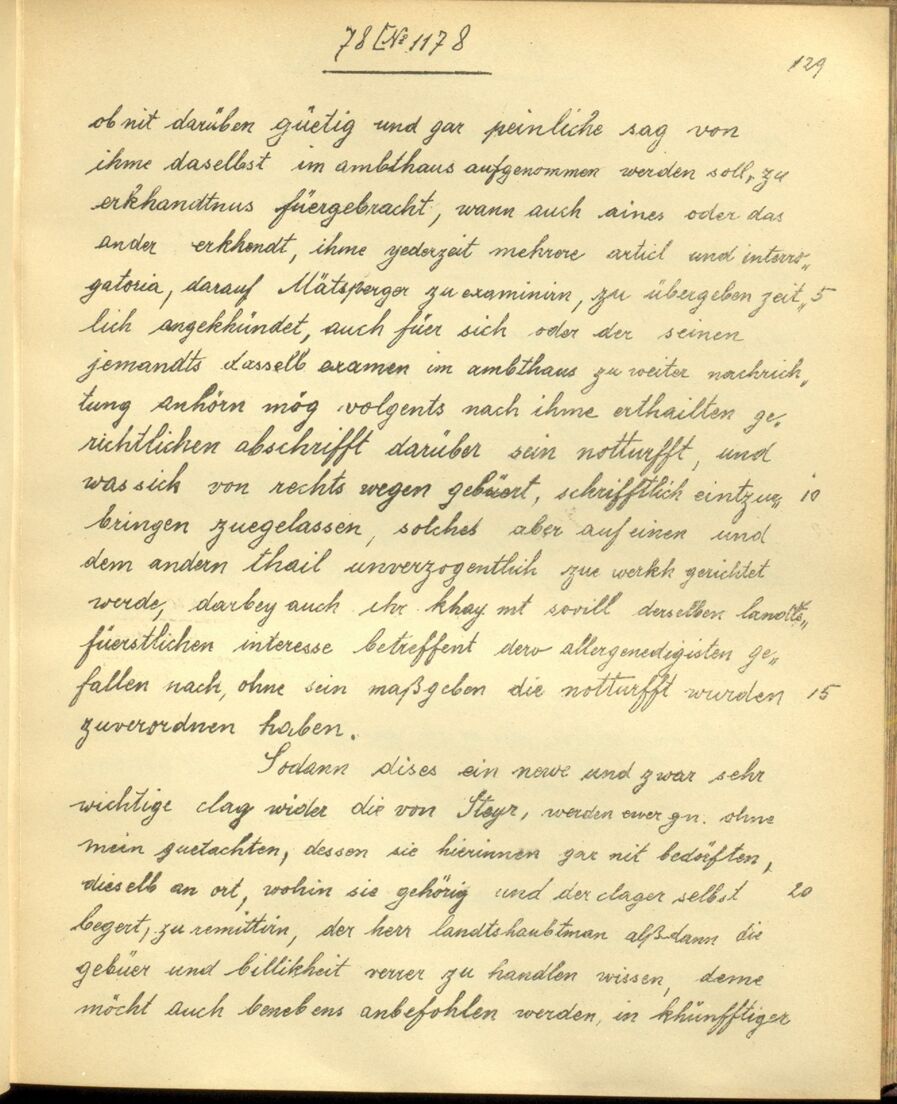 78 [№ 1178
129
ob nit darüben güetig und gar peinliche sag von
ihme daselbst im ambthaus aufgenommen werden soll, zu
erkhandtnus füergebracht, wann auch aines oder das
ander erkhendt, ihme yederzeit mehrere articl und interro„
gatoria, darauf Mätsperger zu examinirn, zu übergeben zeit„ 5
lich angekhündet, auch füer sich oder der seinen
jemandts dasselb examen im ambthaus zu weiter nachrich„
tung anhörn mög volgents nach ihme erthailten ge„
richtlichen abschrifft darüber sein notturfft, und
was sich von rechts wegen gebüert, schrifftlich eintzue„ 10
bringen zuegelassen, solches aber auf einen und
dem andern thail unverzogentlich zue werkh gerichtet
werde, darbey auch ihr khay mt sovill derselben landts„
füerstlichen interesse betreffent dero allergenedigisten ge„
fallen nach, ohne sein maßgeben die notturfft wurden 15
zuverordnen haben.
Sodann dises ein newe und zwar sehr
wichtige clag wider die von Steyr, werden ewer gn. ohne
mein guetachten, dessen sie hierinnen gar nit bedörften,
dieselb an ort, wohin sie gehörig und der clager selbst 20
begert, zu remittirn, der herr landtshaubtman alß dann die
gebüer und billikheit verrer zu handlen wissen, deme
möcht auch benebens anbefohlen werden, in khünfftiger